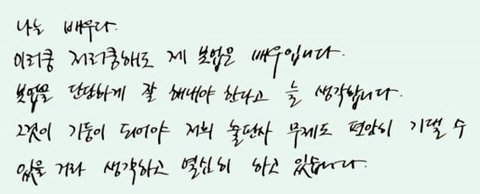 나는 배우다.
이러쿵 저러쿵해도 제 본업은 배우입니다.
본업을 단단하게 잘 해내야 한다고 늘 생각합니다.
그것이 기둥이 되어야 저희 출판사 무제도 편안히 기댈 수
있을 거라 생각하고 열심히 하고 있습니다.